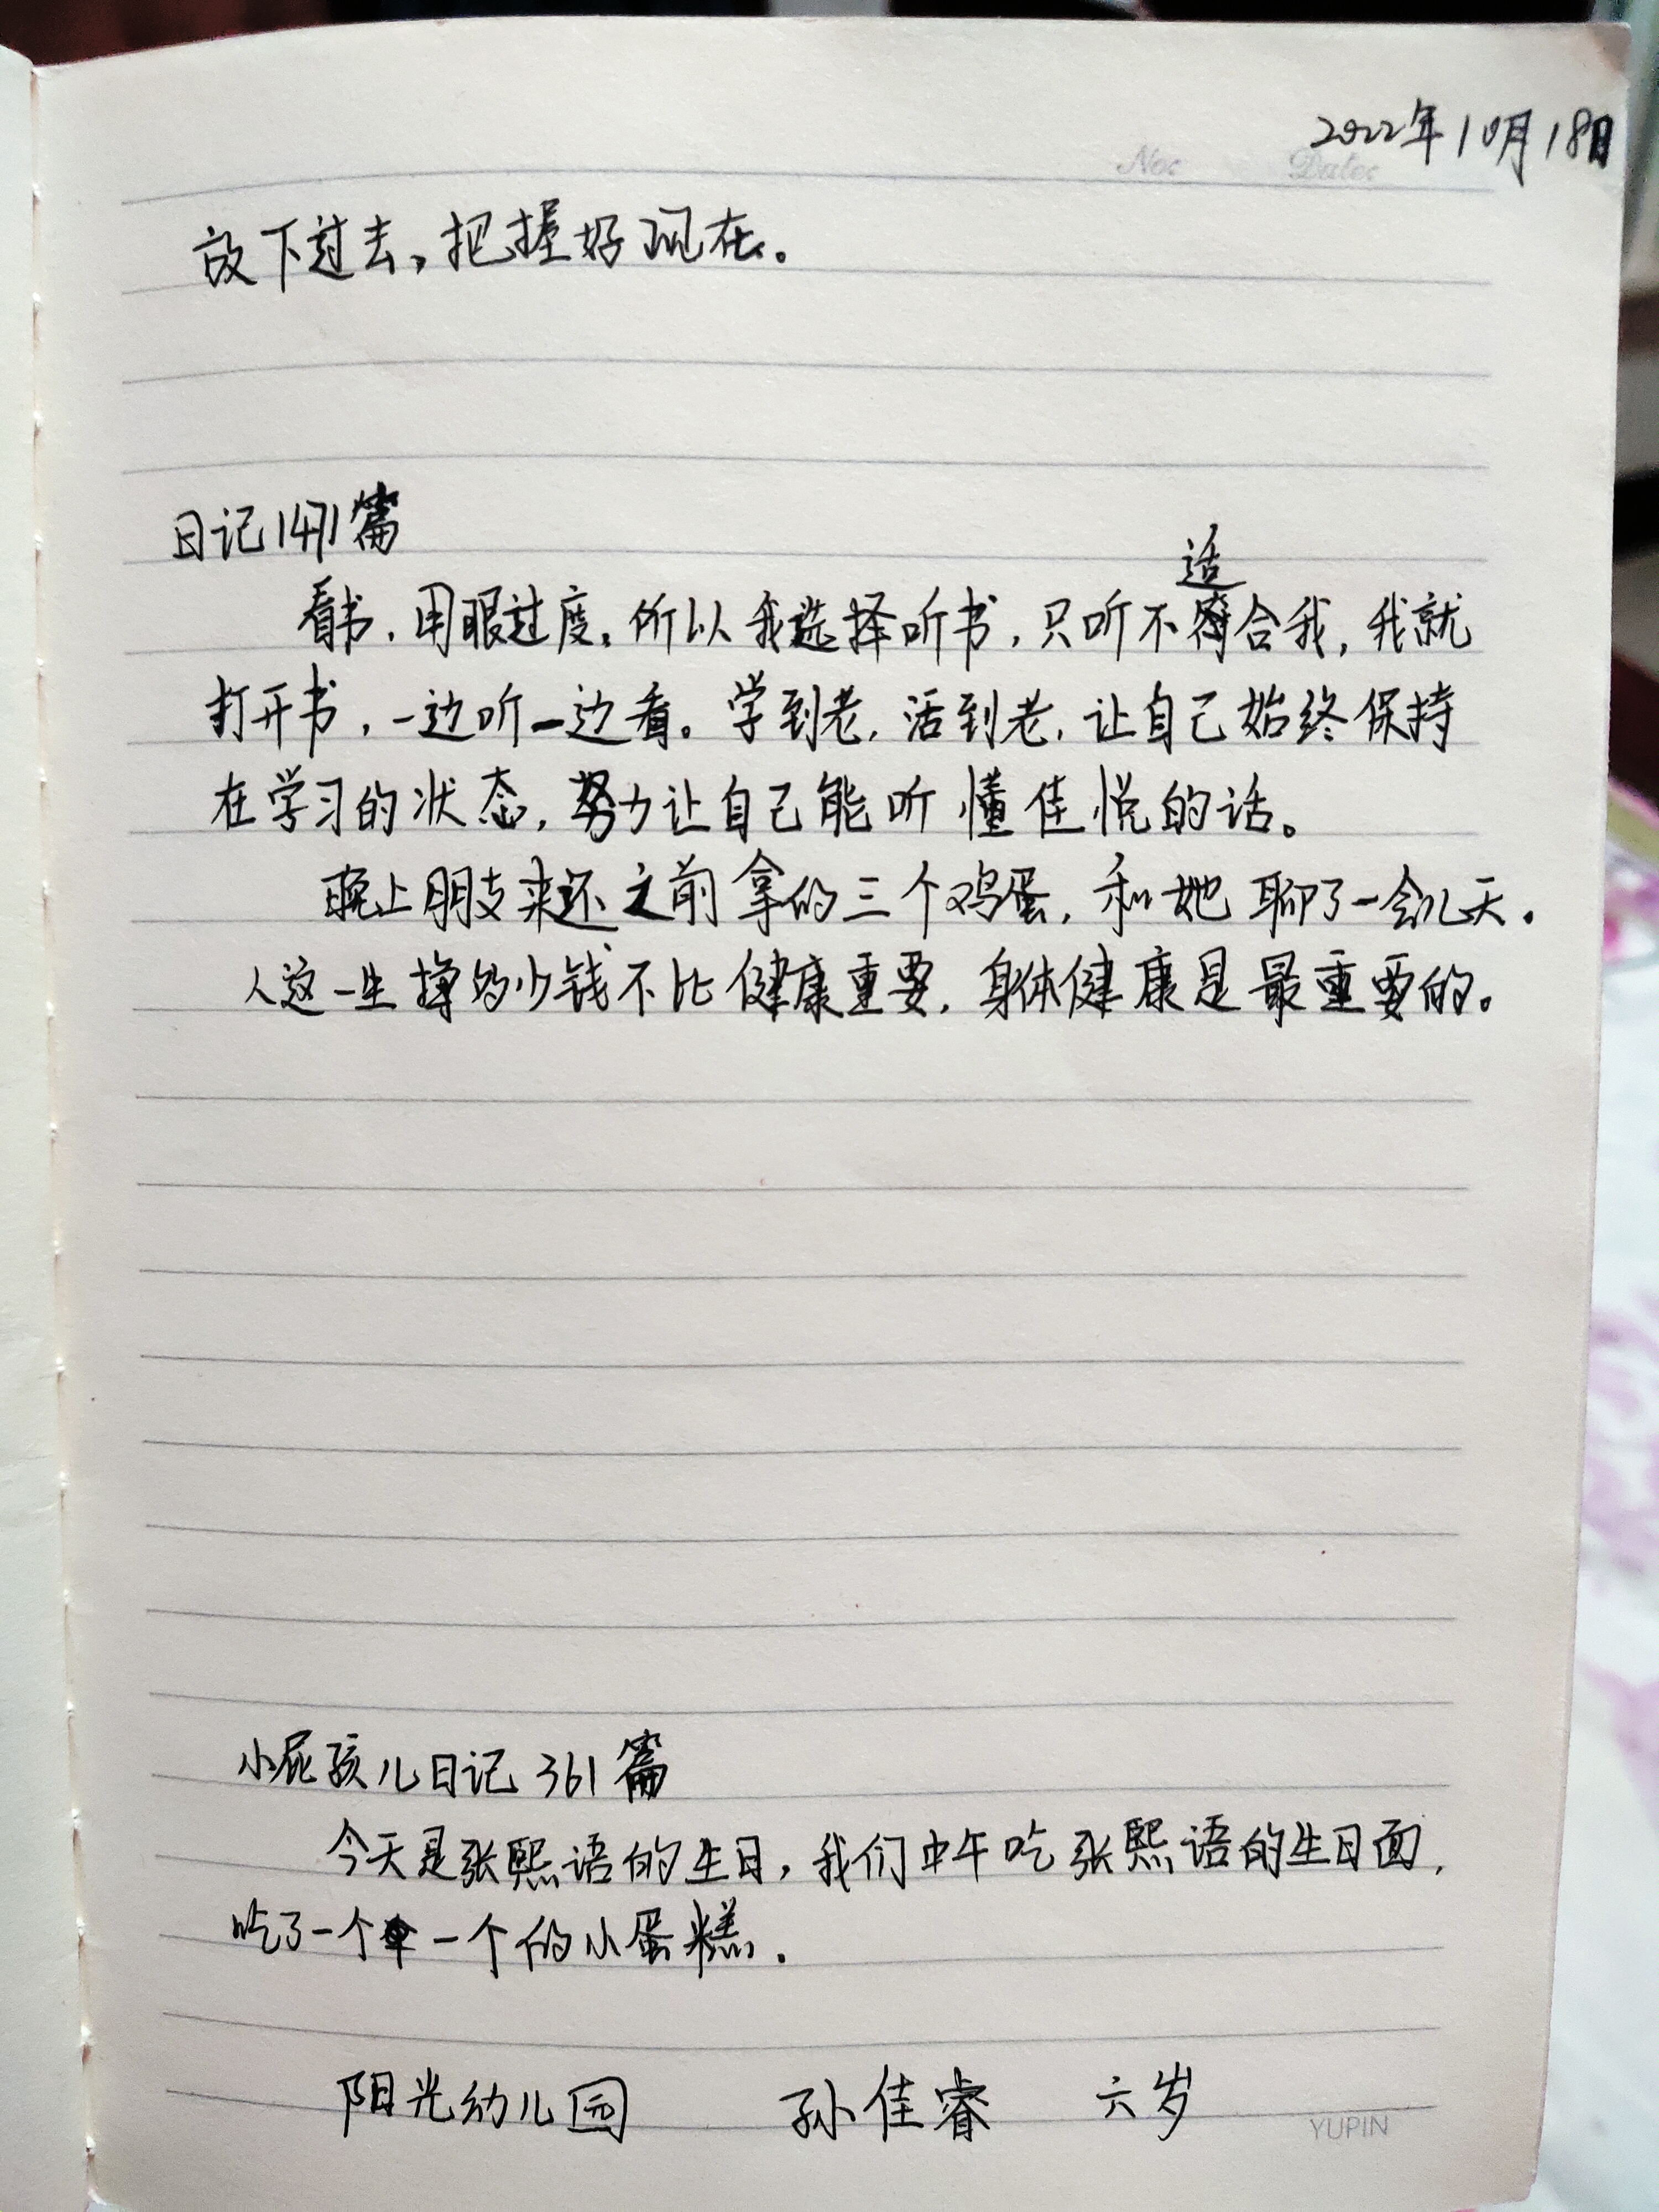 2022年10月18日
No: Date:
放下过去，把握好现在。
日记1471篇
适
看书，用眼过度。所以我选择听书，只听不合我，我就
打开书，一边听一边看。学到老，活到老，让自己始终保持
在学习的状态，努力让自己能听懂佳悦的话。
晚上朋友来还之前拿的三个鸡蛋，和她聊了一会儿天。
人这一生挣多少钱不比健康重要，身体健康是最重要的。
小屁孩儿日记361篇
今天是张熙语的生日，我们中午吃张熙语的生日面，
吃了一个一个的小蛋糕。
阳光幼儿园 孙佳睿 六岁
YUPIN